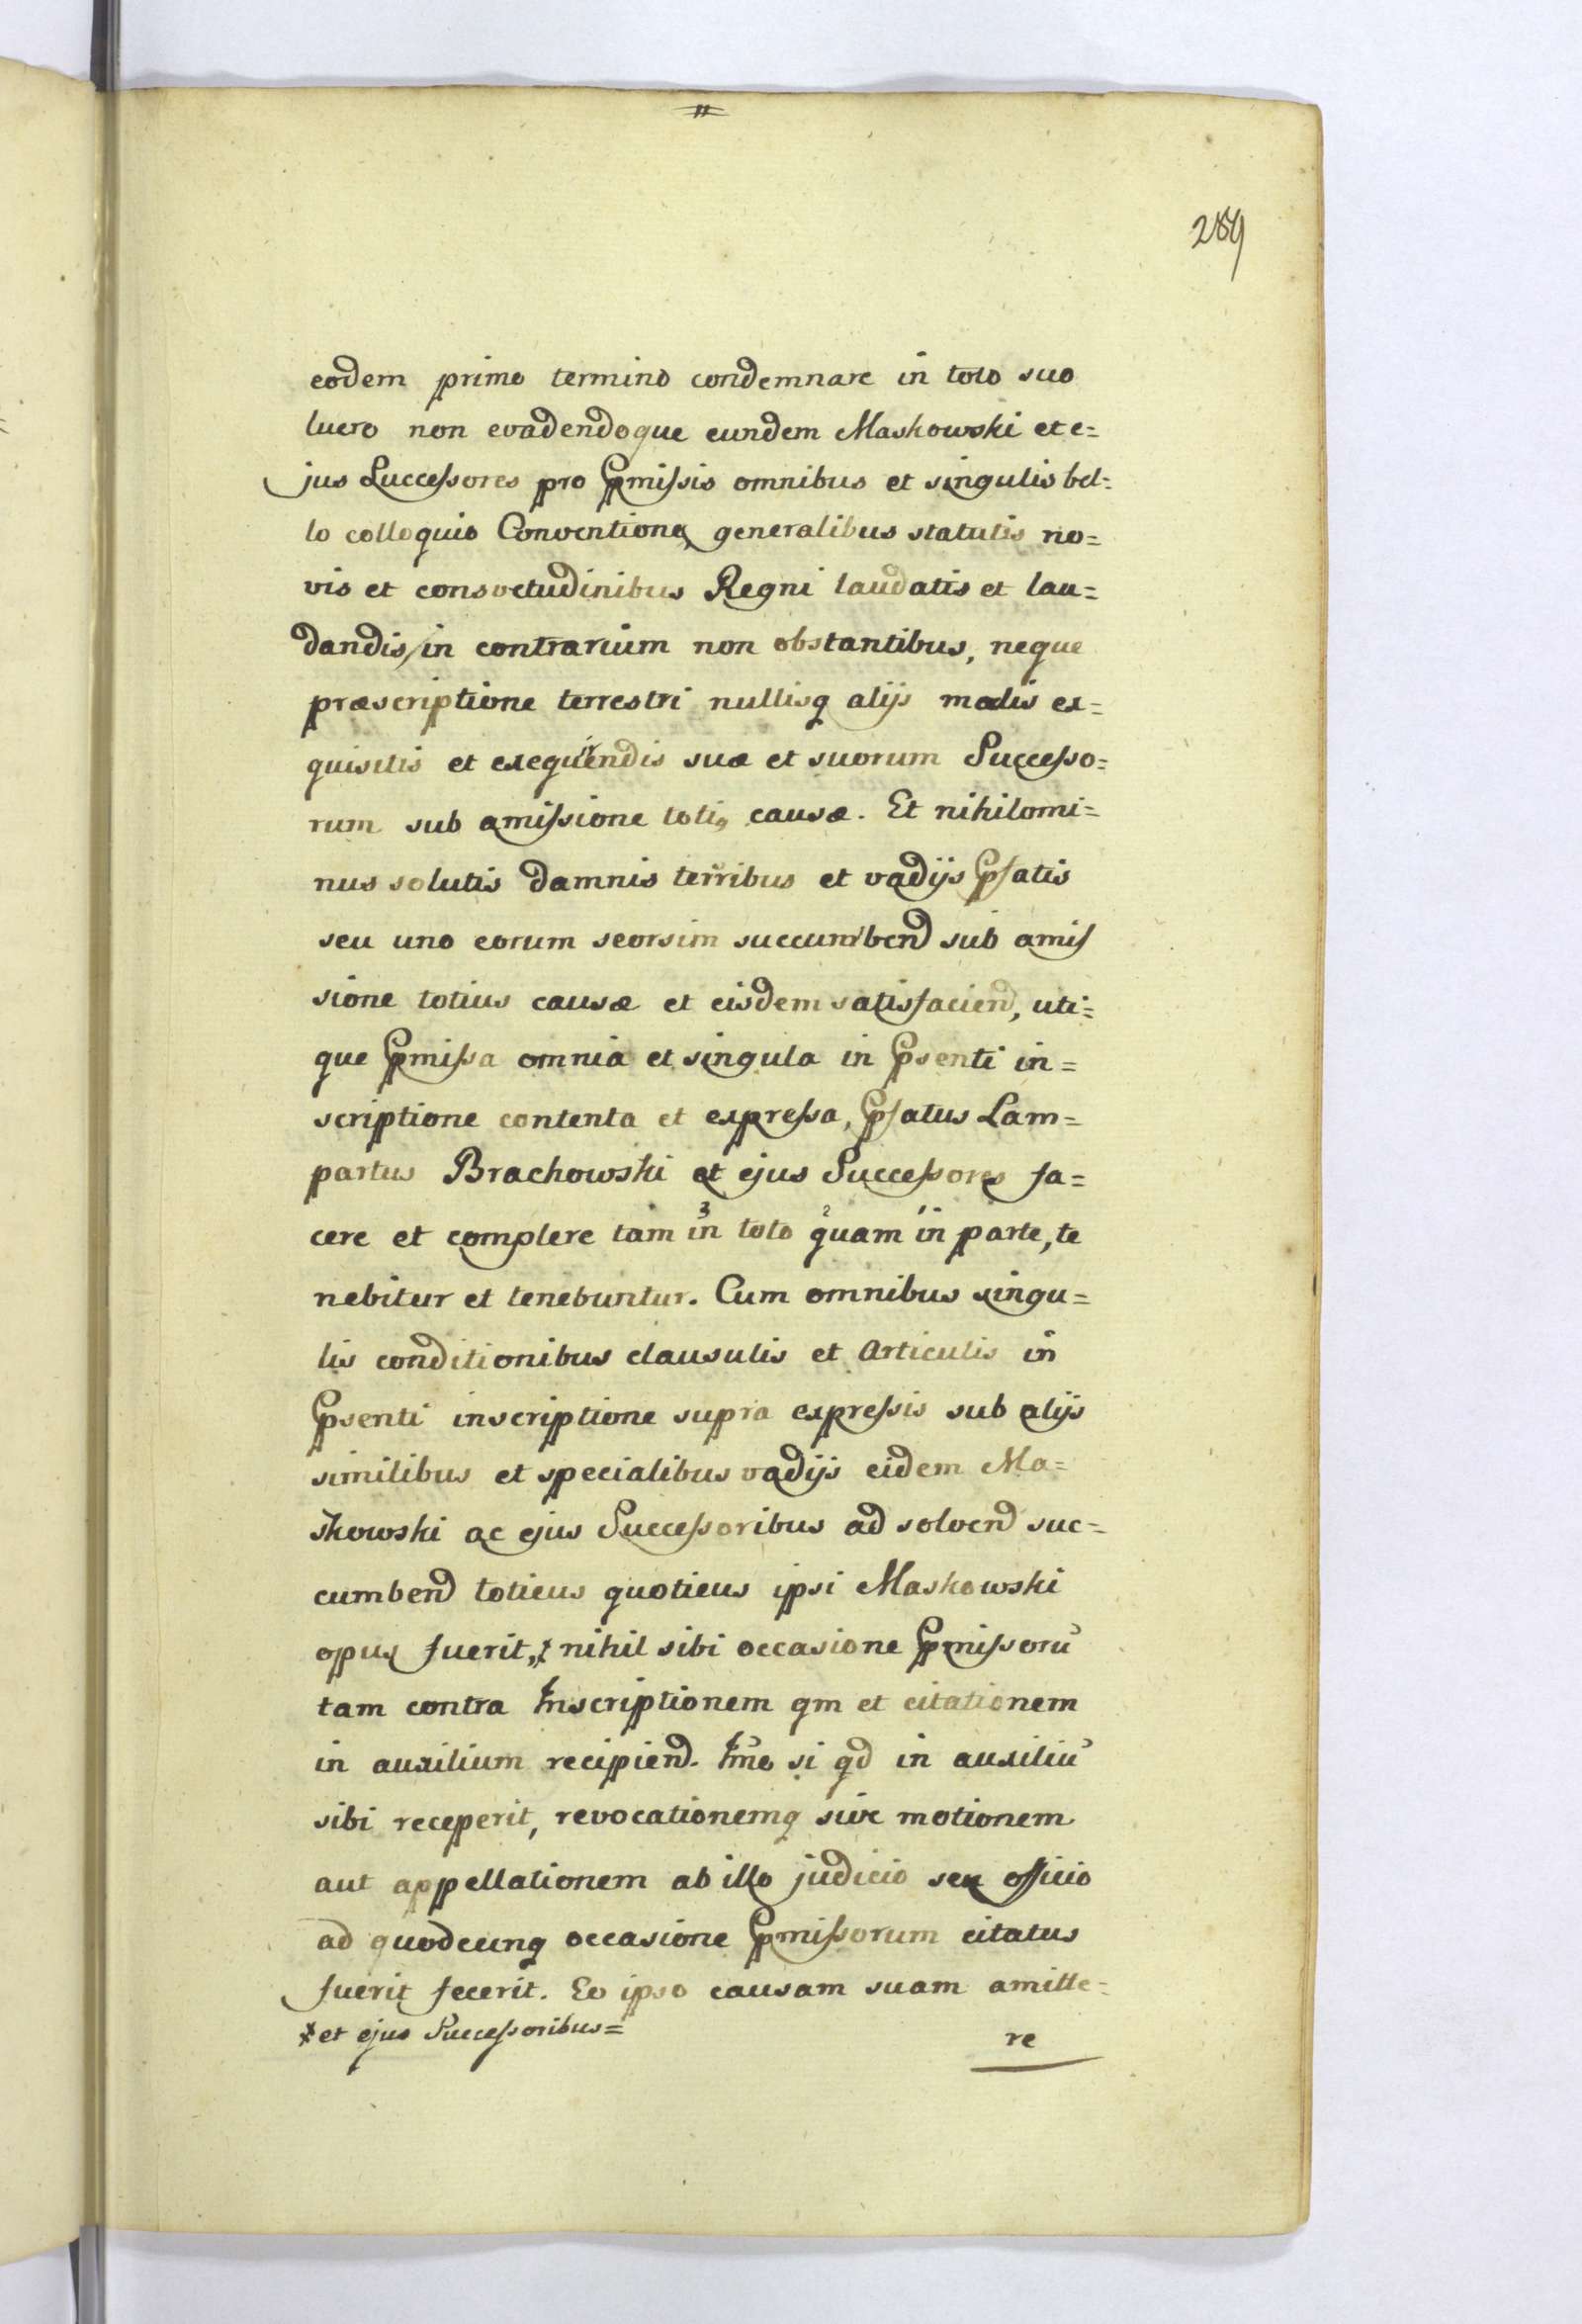 284
eodem primo termino condemnare in toto suo
lucro non evadendoque eundem Maskowski et e=
jus Successores pro Pmissis omnibus et singulis bel=
lo colloquio Conventione generalibus statutis no=
vis et consvetudinibus Regni laudatis et lau=
dandis in contrarium non obstantibus, neque
præscriptione terrestri nullisq alijs modis ex=
quisitis et exequirendis suæ et suorum Successo=
rum sub amissione toti9 causæ. Et nihilomi=
nus solutis damnis terribus et vadijs Pfatis
seu uno eorum seorsim succumbend sub amis
sione totius causæ et eisdem satisfaciend, uti=
que Pmissa omnia et singula in Psenti in=
scriptione contenta et expressa, Pfatus Lam=
partus Brachowski et ejus Successores fa=
cere et complere tam in toto quam in parte, te
nebitur et tenebuntur. Cum omnibus singu=
lis conditionibus clausulis et Articulis in
Psenti inscriptione supra expressis sub alijs
similibus et specialibus vadijs eidem Ma=
skowski ac ejus Successoribus ad solvend suc=
cumbend toties quoties ipsi Maskowski
opus fuerit, nihil sibi occasione Pmissoru
tam contra Inscriptionem qm et citationem
in auxilium recipiend. Imo si qd in auxiliu
sibi receperit, revocationemq sive motionem
aut appellationem ab illo judicio seu officio
ad quodcunq occasione Pmissorum citatus
fuerit fecerit. Eo ipso causam suam amitte=
et ejus Successoribus=
re